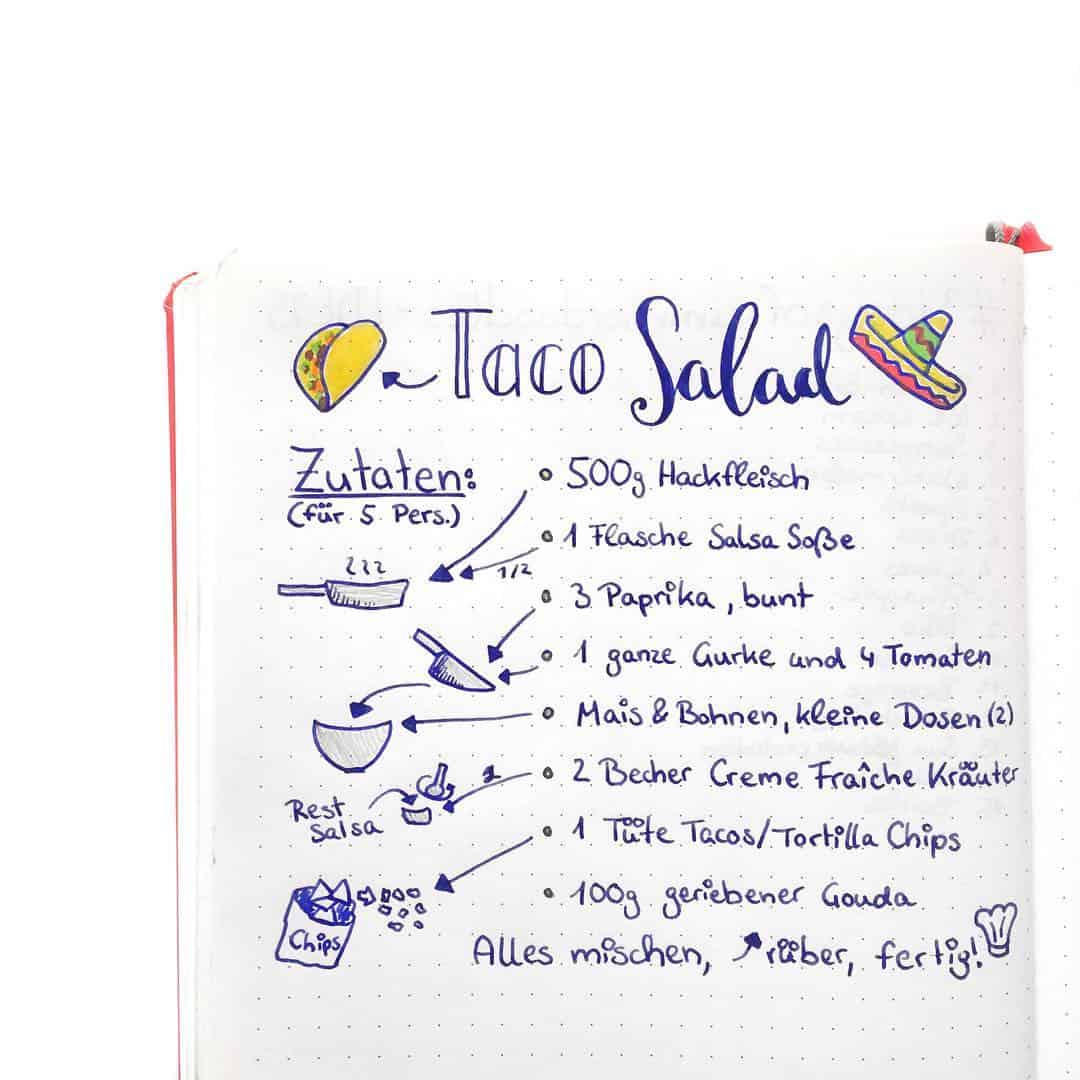 Taco Salad
Zutaten:
(für 5 Pers.)
500g Hackfleisch
1 Flasche Salsa Soße
1/2
3 Paprika, bunt
1 ganze Gurke und 4 Tomaten
Mais & Bohnen, kleine Dosen (2)
2 Becher Creme Fraîche Kräuter
Rest
Salsa
1 Tüte Tacos/Tortilla Chips
100g geriebener Gouda
Chips
Alles mischen, rüber, fertig!